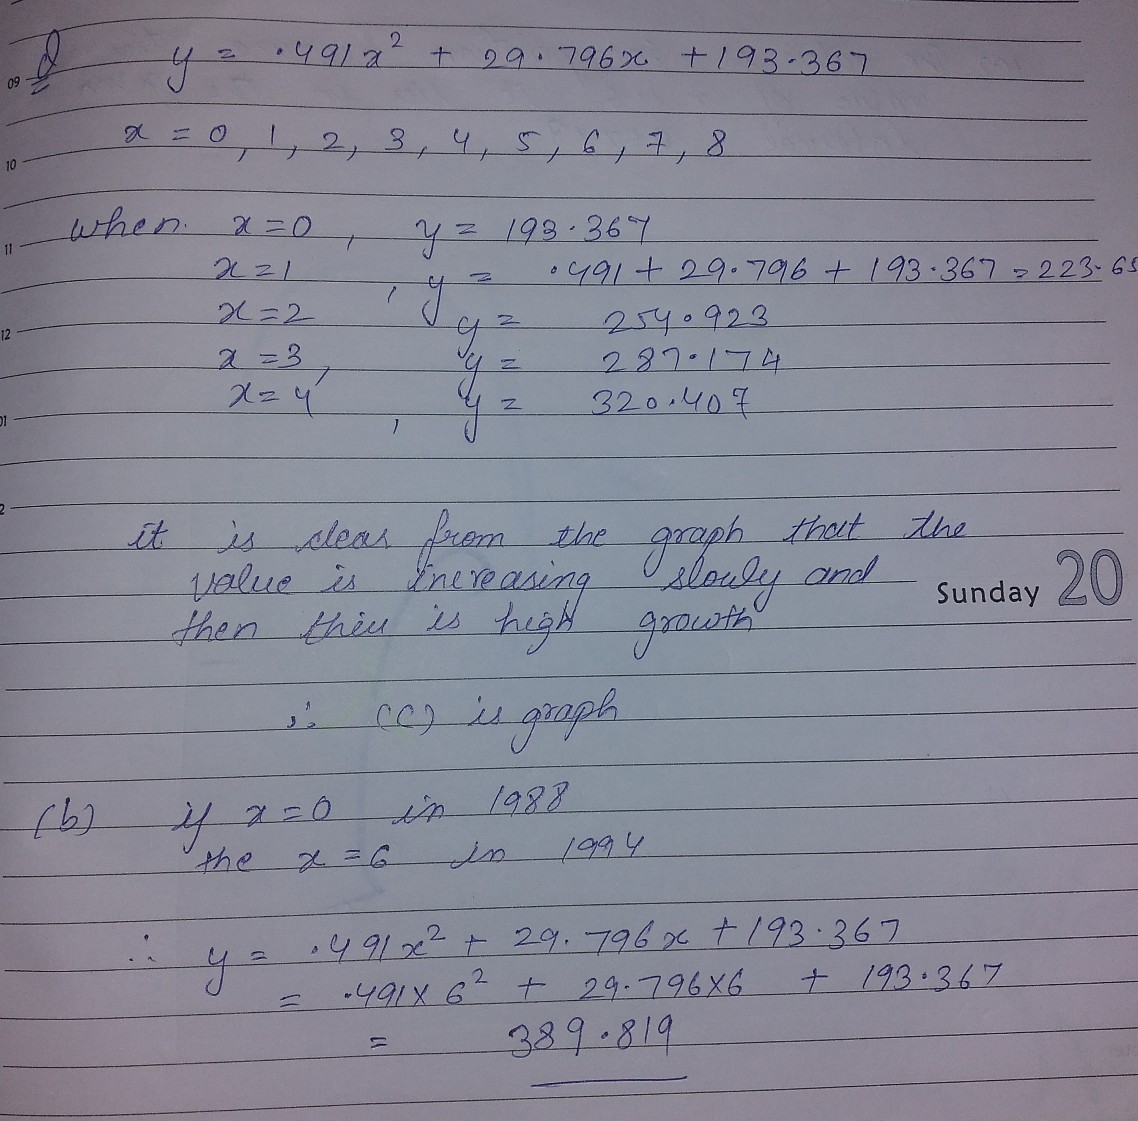 d y = .491x² + 29.796x + 193.367
09
x = 0, 1, 2, 3, 4, 5, 6, 7, 8
10
when x=0, y = 193.367
11
x=1, y = .491 + 29.796 + 193.367 = 223.65
x=2 y = 254.923
12
x=3, y = 287.174
x=4, y = 320.407
01
2
it is clear from the graph that the
value is increasing slowly and
Sunday 20
then this is high growth
∴ (C) is graph
(b) if x=0 in 1988
the x=6 in 1994
∴ y = .491x² + 29.796x + 193.367
= .491x 6² + 29.796x6 + 193.367
= 389.819